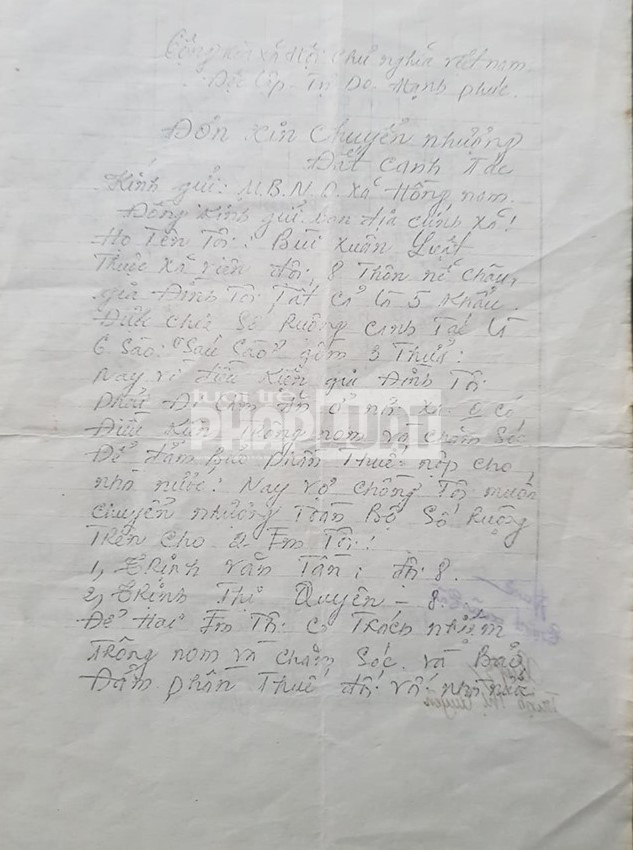 Cộng hòa xã Hội chủ nghĩa việt nam
Độc lập - Tự Do - Hạnh phúc
Đơn xin chuyển nhượng
Đất canh tác
Kính gửi: U.B.N.D. xã Hồng nam.
Đồng kính gửi ban địa chính xã!
Họ Tên Tôi: Bùi Xuân Luật
Thuộc xã viên đội 8 Thôn nễ châu,
gia Đình Tôi Tất cả là 5 khẩu.
Được chia Số Ruộng canh Tác là
6 Sào: "Sáu Sào" gồm 3 Thửa:
Nay vì điều kiện gia Đình Tôi
phải Đi làm ăn ở
Điều kiện Trông nom và chăm sóc
Để đảm Bảo phần Thuế nộp cho
nhà nước! Nay vợ chồng Tôi muốn
chuyển nhượng Toàn Bộ Số Ruộng
Trên cho 2 Em Tôi!
1, Trịnh Văn Tân: đội 8.
2, Trịnh Thị Quyên - 8
Để Hai Em Tôi có Trách nhiệm
Trông nom và chăm Sóc và Bảo
Đảm phần Thuế đối với nhà nước
PHÁP LUẬT
Trịnh Thị Quyên